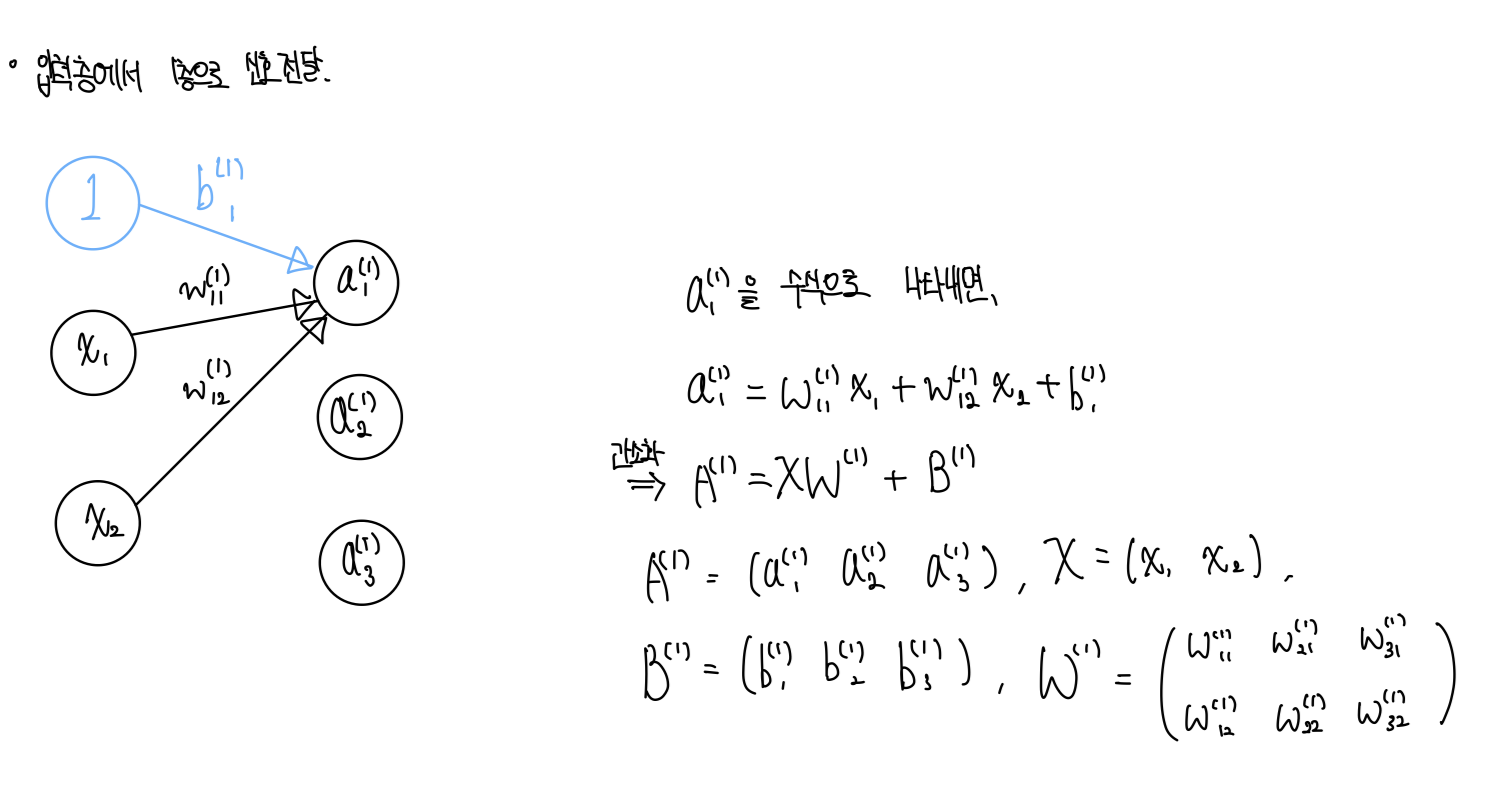 • 입력층에서 1층으로 신호전달.
1
b₁⁽¹⁾
w₁₁⁽¹⁾
a₁⁽¹⁾
x₁
w₁₂⁽¹⁾
a₂⁽¹⁾
x₂
a₃⁽¹⁾
a₁⁽¹⁾을 수식으로 나타내면,
a₁⁽¹⁾ = w₁₁⁽¹⁾ x₁ + w₁₂⁽¹⁾ x₂ + b₁⁽¹⁾
간소화
⇒ A⁽¹⁾ = XW⁽¹⁾ + B⁽¹⁾
A⁽¹⁾ = (a₁⁽¹⁾ a₂⁽¹⁾ a₃⁽¹⁾), X = (x₁ x₂),
B⁽¹⁾ = (b₁⁽¹⁾ b₂⁽¹⁾ b₃⁽¹⁾), W⁽¹⁾ = (w₁₁⁽¹⁾ w₂₁⁽¹⁾ w₃₁⁽¹⁾
w₁₂⁽¹⁾ w₂₂⁽¹⁾ w₃₂⁽¹⁾)